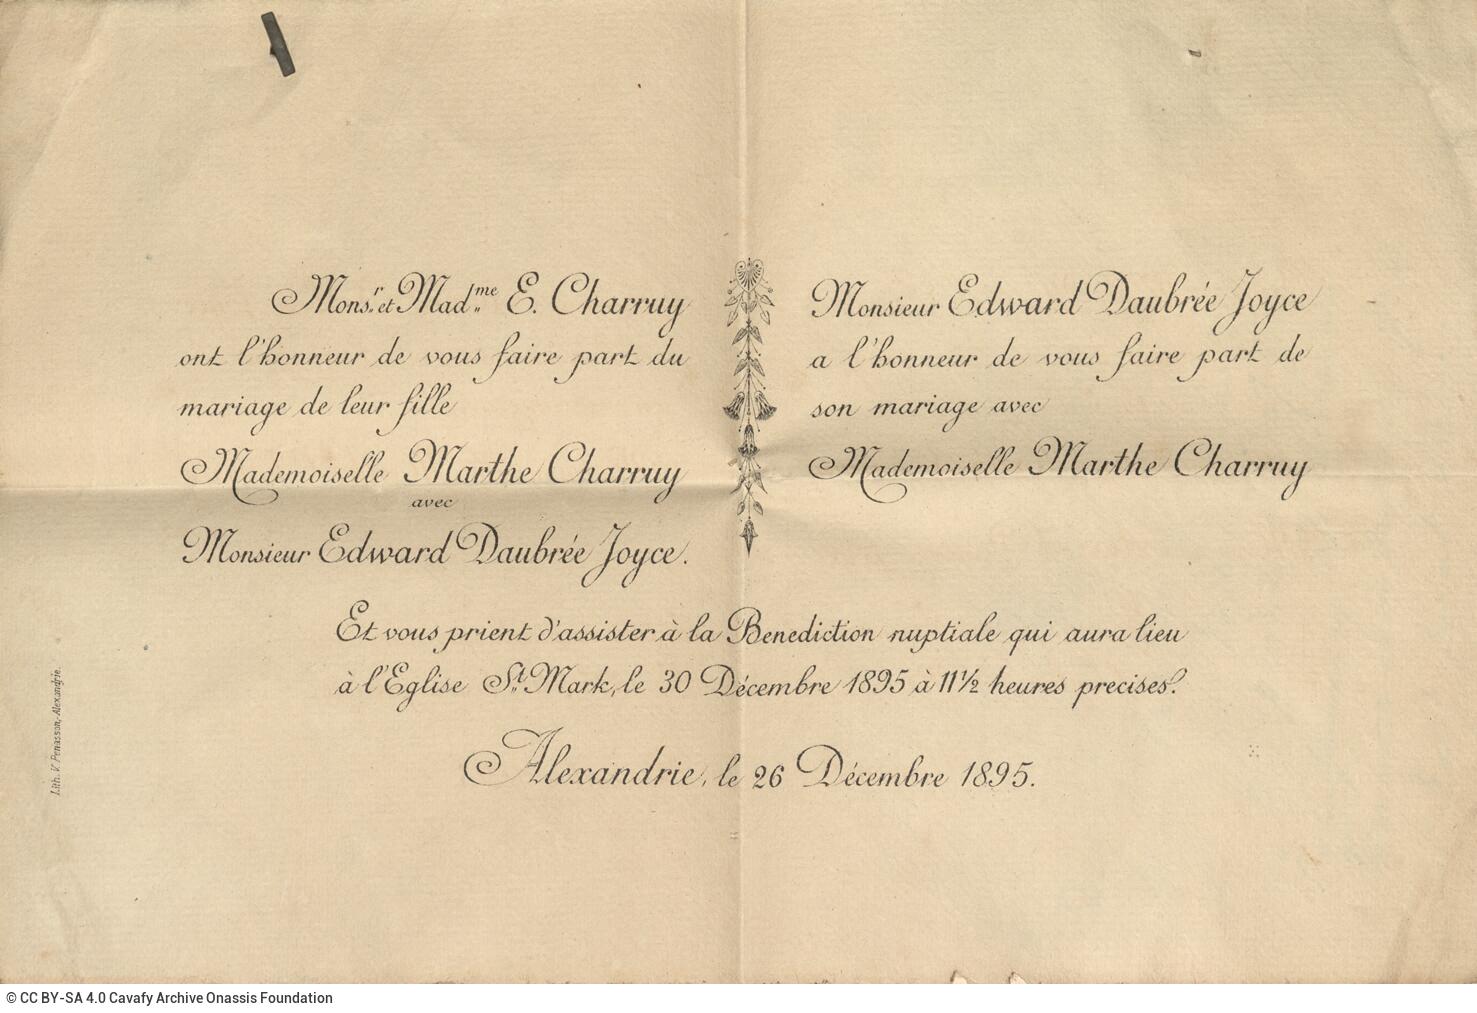 Mons.r et Mad.me E. Charruy
ont l'honneur de vous faire part du
mariage de leur fille
Mademoiselle Marthe Charruy
avec
Monsieur Edward Daubrée Joyce.
Monsieur Edward Daubrée Joyce
a l'honneur de vous faire part de
son mariage avec
Mademoiselle Marthe Charruy
Et vous prient d'assister à la Benediction nuptiale qui aura lieu
à l'Eglise St. Mark, le 30 Décembre 1895 à 11 1/2 heures precises.
Alexandrie, le 26 Décembre 1895.
Lith. V. Penasson, Alexandrie.
© CC BY-SA 4.0 Cavafy Archive Onassis Foundation